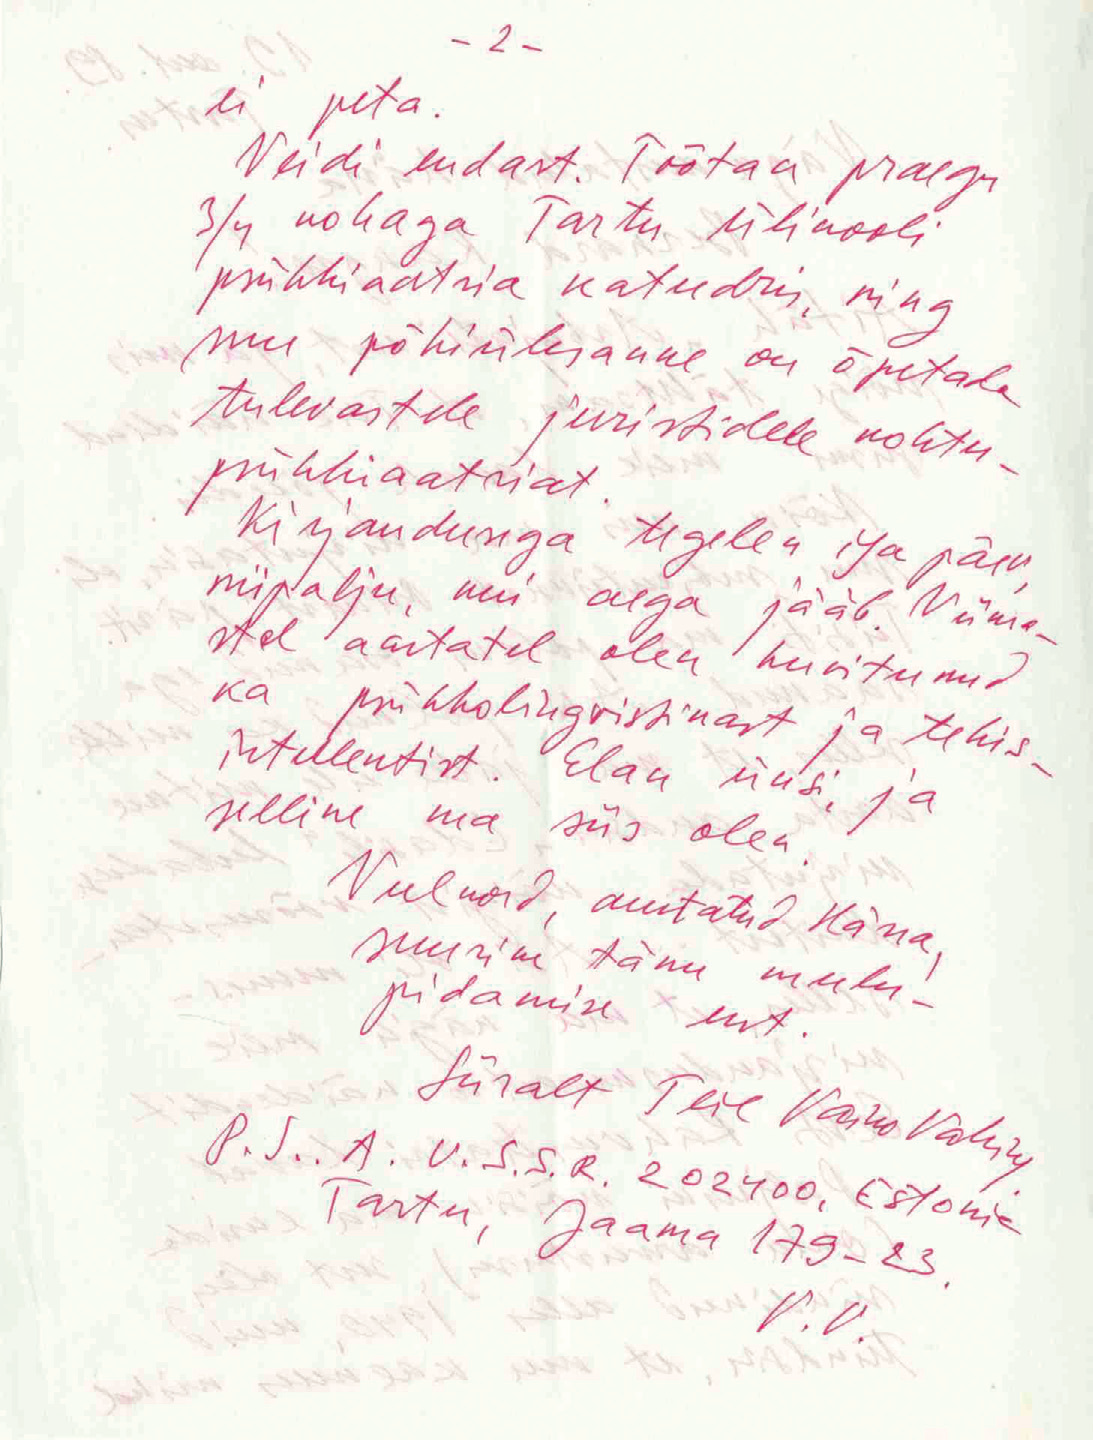 - 2 -
ei peta.
Veidi endast. Töötan praegu
3/4 kohaga Tartu Ülikooli
psühhiaatria kateedris, ning
mu põhiülesanne on õpetada
tulevastele juristidele kohtu-
psühhiaatriat.
Kirjandusega tegelen iga päev,
niipalju, kui aega jääb. Viima-
stel aastatel olen huvitunud
ka psühholingvistikast ja tehis-
intellektist. Elan üksi, ja
selline ma siis olen.
Veelkord, austatud härra,
suurim tänu meeles-
pidamise eest.
Siiralt Teie Vaino Vahing
P.S.. A. U.S.S.R. 202400, Estonia
Tartu, Jaama 179-23.
V.V.